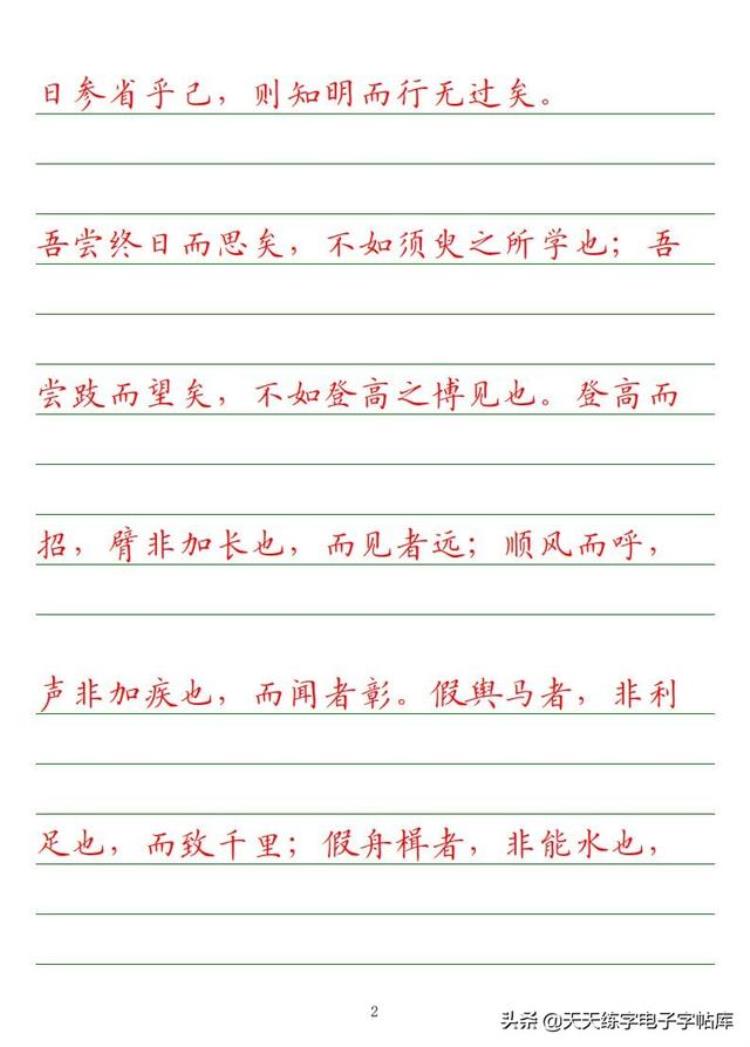 日参省乎己，则知明而行无过矣。
吾尝终日而思矣，不如须臾之所学也；吾
尝跂而望矣，不如登高之博见也。登高而
招，臂非加长也，而见者远；顺风而呼，
声非加疾也，而闻者彰。假舆马者，非利
足也，而致千里；假舟楫者，非能水也，
2
头条 @天天练字电子字帖库